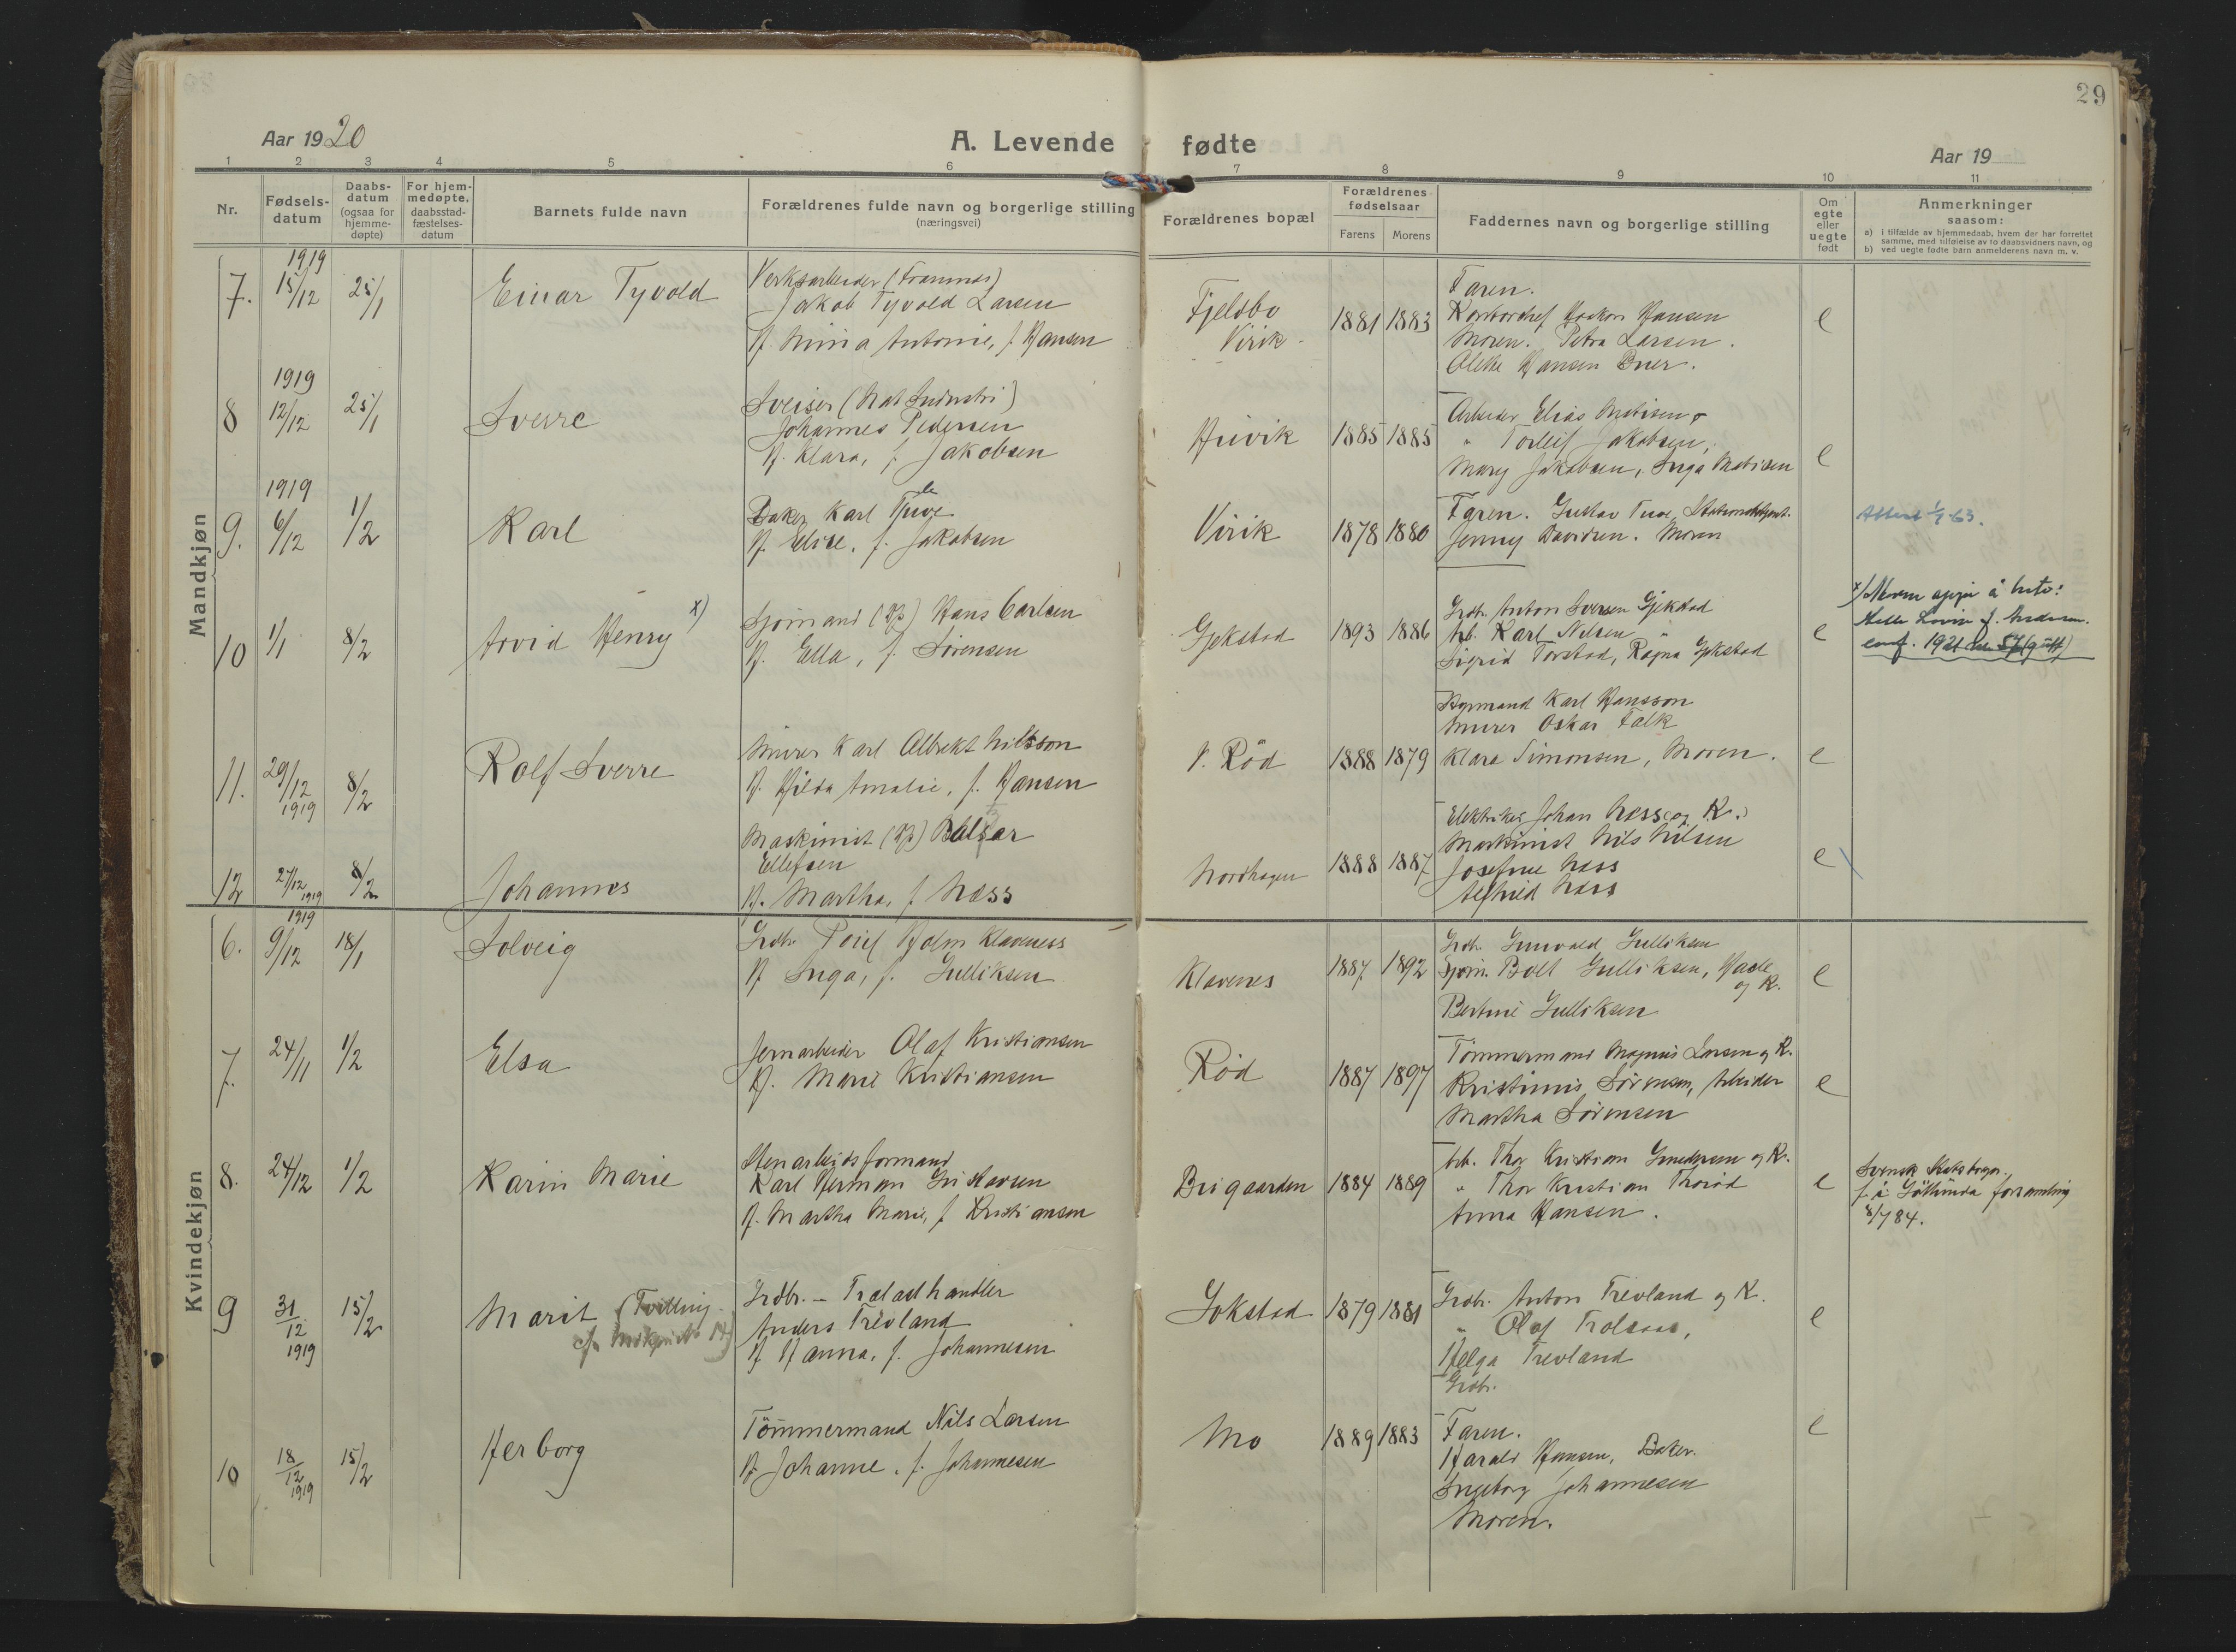 29
Aar 1920
A. Levende fødte
Aar 19
1 2 3 4 5 6 7 8 9 10 11
Nr.
Fødsels-datum
Daabs-datum (ogsaa for hjemme-døpte)
For hjem-medøpte, daabsstad-fæstelses-datum
Barnets fulde navn
Forældrenes fulde navn og borgerlige stilling
(næringsvei)
Forældrenes bopæl
Forældrenes fødselsaar
Farens Morens
Faddernes navn og borgerlige stilling
Om egte eller uegte født
Anmerkninger
saasom:
a) i tilfælde av hjemmedaab, hvem der har forrettet
samme, med tilføielse av to daabsvidners navn, og
b) ved uegte fødte barn anmelderens navn m. v.
Mandkjøn
7. 1919 15/12 25/1 Einar Tyvold
Verksarbeider (Framnæs)
Jakob Tyvold Larsen
H. Mina Antonie, f. Hansen
Fjeldbo
Virik
1881 1883
Faren.
Hansen
Moren. Petra Larsen.
Hansen
e
8 1919 12/12 25/1 Sverre
Sveiser (Nat Industri)
Johannes Pedersen
H. Klara, f. Jakobsen
Huvik
1885 1885
Arbeider Elias Matisen
" Torleif Jakobsen,
Mary Jakobsen, Inga Matisen
e
9. 1919 6/12 1/2 Karl
Baker Karl
H. Elise, f. Jakobsen
Virik
1878 1880
Faren. Gustav
Jenny Davidsen. Moren
Attest 63.
10 1/1 8/2 Arvid Henry x)
Sjømand Hans Carlsen
H. Ella, f. Sørensen
Gjekstad
1893 1886
Grdb. Anton Iversen Gjekstad
Arb. Karl Nilsen "
Sigrid Torstad, Ragna Gjekstad
e
x) Moren
f. Andersen.
conf. 1921
11. 29/12 1919 8/2 Rolf Sverre
Murer Karl Albrekt Nilsson
H. Hilda Amalie, f. Hansen
V. Röd
1888 1879
Karl Hansson
Murer Oskar Falk
Klara Simonsen, Moren.
e
12 27/12 1919 8/2 Johannes
Maskinist
Ellefsen
H. Martha, f. Næss
Nordhagen
1888 1887
Elektriker Johan Næss og K.
Maskinist Nils Nilsen
Josefine Næss
Alfhild Næss
e
Kvindekjøn
6. 1919 9/12 18/1 Solveig
Grdb. Holm Klaveness
H. Inga, f. Gulliksen
Klavenes
1887 1892
Grdb. Gunvald Gulliksen
Sjøm. Gulliksen,
og K.
Bertine Gulliksen
e
7. 24/11 1/2 Elsa
Jernarbeider Olaf Kristiansen
H. Marie Kristiansen
Rød
1887 1897
Tømmermand Magnus Larsen og K.
Sørensen, Arbeider
Martha Sørensen
e
8. 24/12 1/2 Karin Marie
Stenarbeidsformand
Karl Herman Gustavsen
H. Martha Marie, f. Kristiansen
Brigaarden
1884 1889
Arb. Thor Kristian og K.
" Thor Kristian Thorød
Anna Hansen.
e
Svensk Statsborger.
f. i forsamling
8/7 84.
9 31/12 1919 15/2 Marit (Tvilling
cfr. Mandkjøn
Grdbr. – Trælasthandler
Anders Trevland
H. Hanna, f. Johannesen
Gokstad
1879 1881
Grdb. Anton Trevland og K.
" Olaf
Helga Trevland
Grdb.
e
10 18/12 1919 15/2 Herborg
Tömmermand Nils Larsen
H. Johanne, f. Johannesen
Mo
1889 1883
Faren.
Harald Hansen, Baker.
Ingeborg Johannesen
Moren.
e